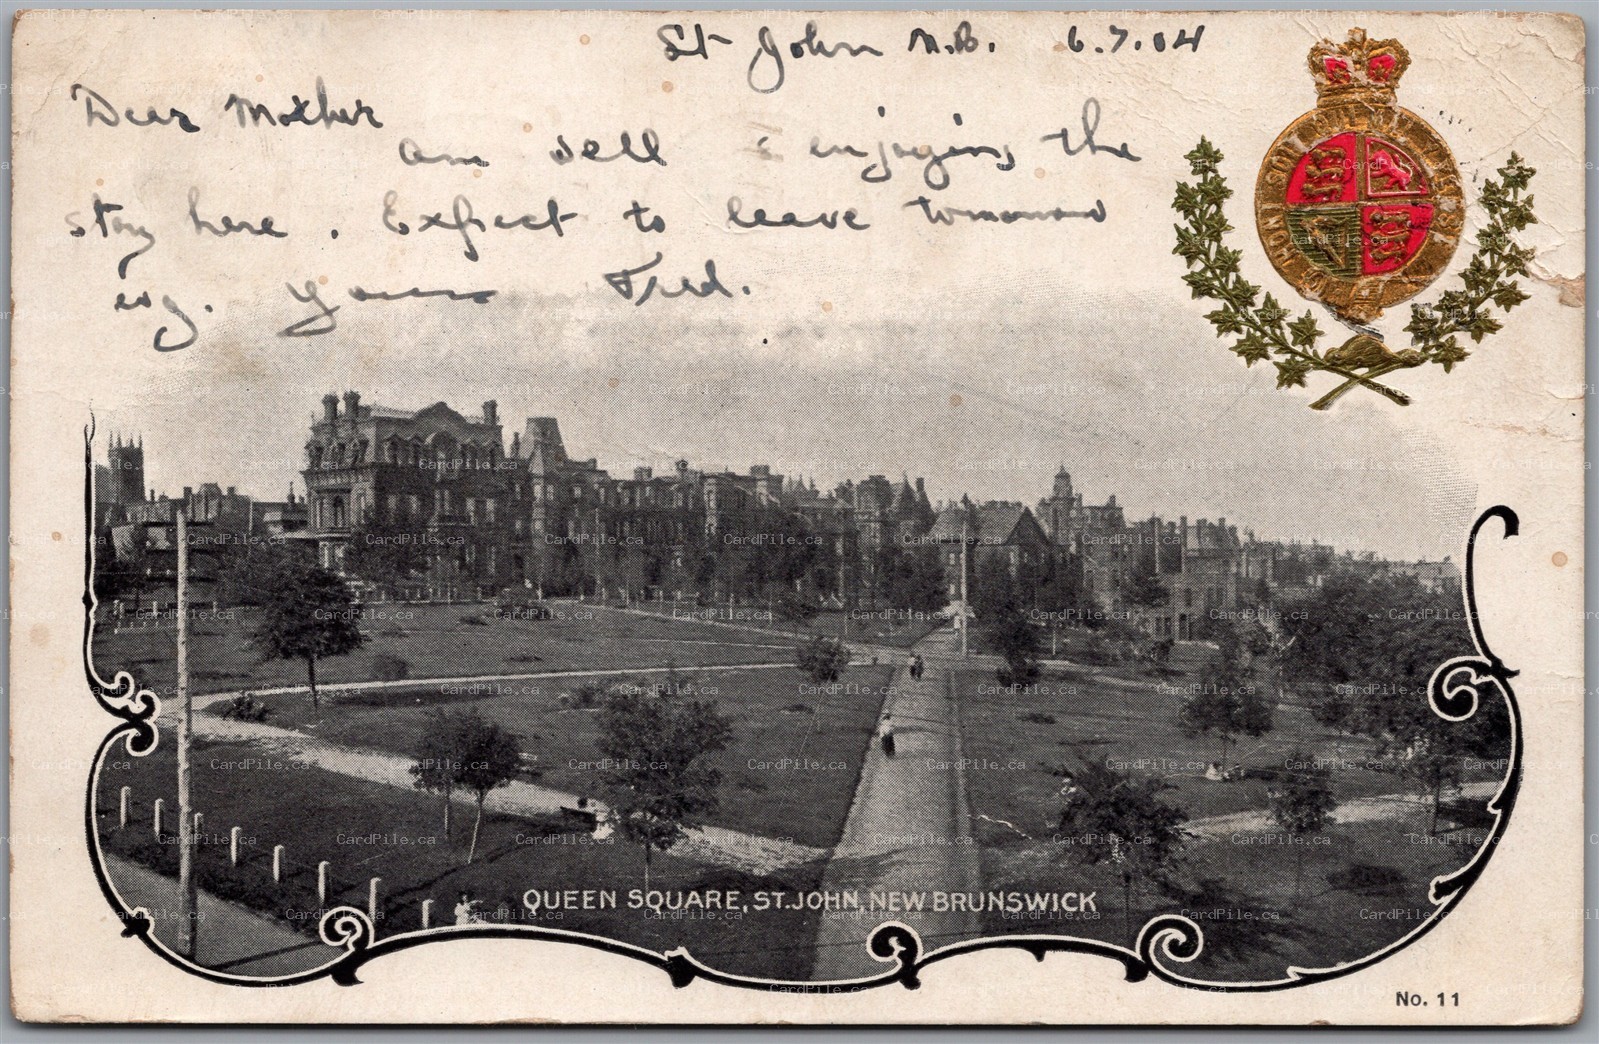 St John N.B. 6.7.04
Dear Mother
am well & enjoying the
stay here. Expect to leave tomorrow
evg. Yours Fred.
QUEEN SQUARE, ST. JOHN, NEW BRUNSWICK
No. 11
CardPile.ca